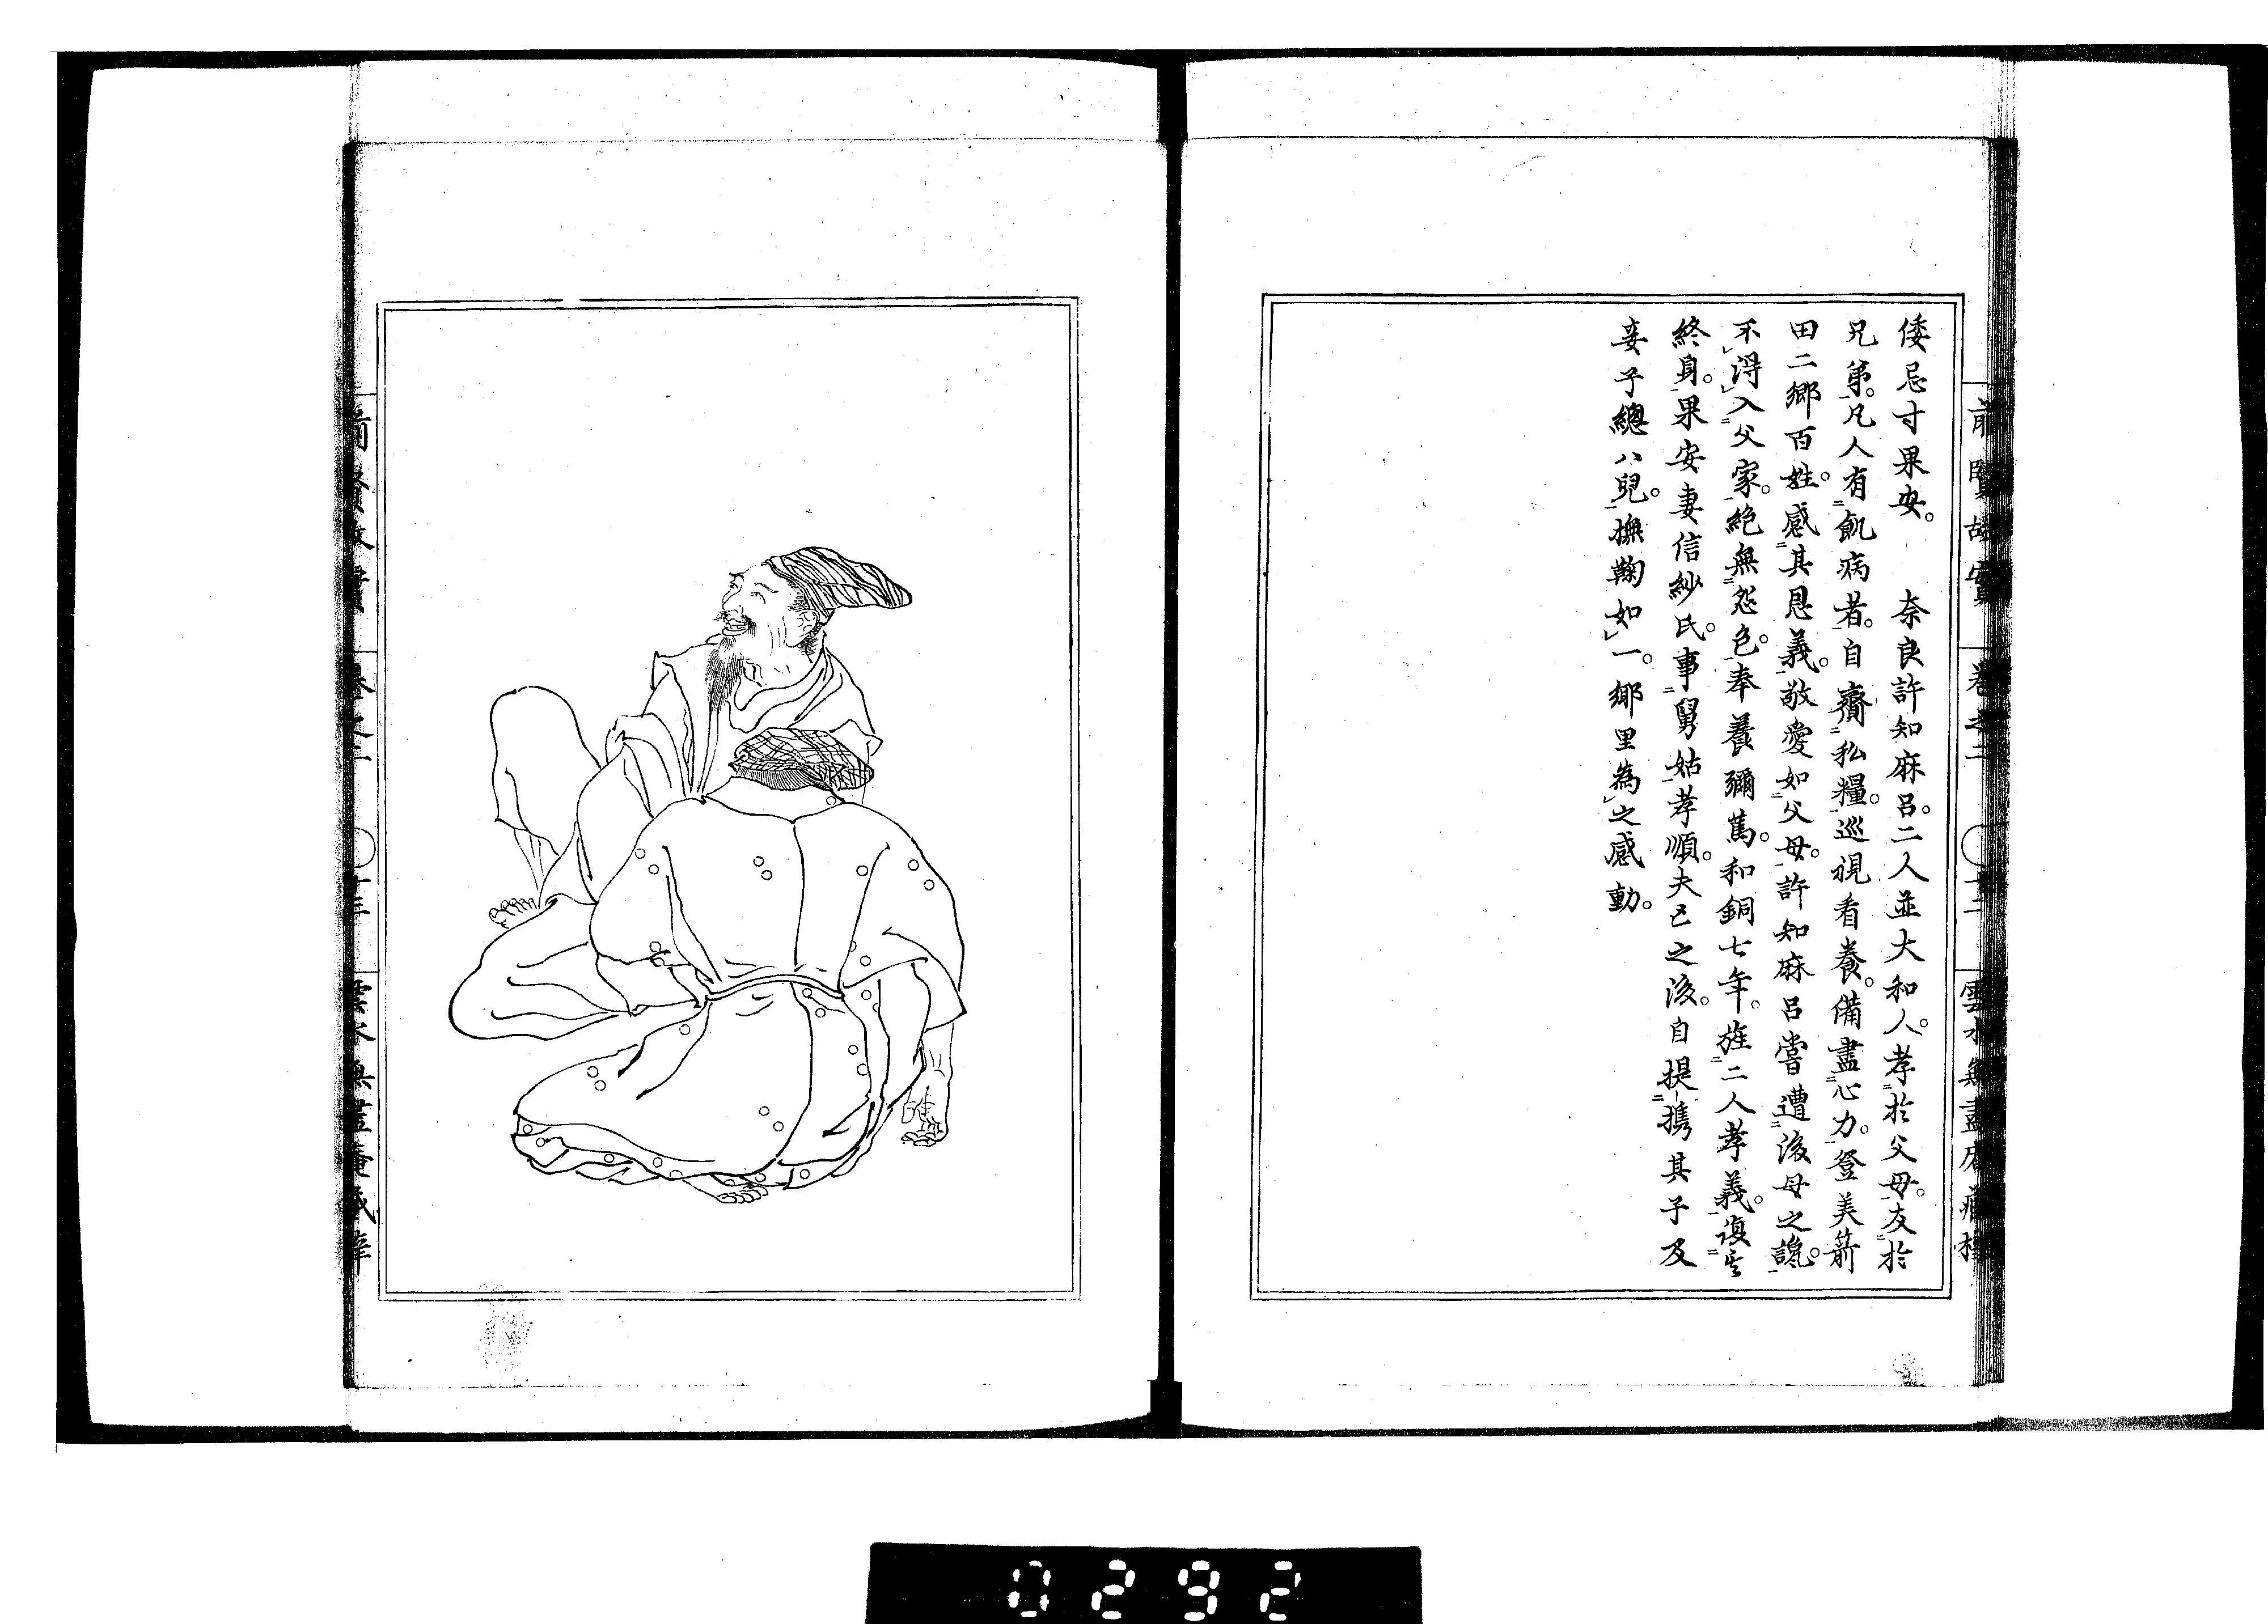 前賢故實 卷之二 〇十二 雲水無盡庵藏
倭忌寸果安。 奈良許知麻呂。二人並大和人。孝於父母。友於
兄弟。凡人有飢病者。自齎私糧。巡視看養。備盡心力。登美箭
田二鄉百姓。感其恩義。敬愛如父母。許知麻呂嘗遭後母之讒。
不得入父家。絕無怨色。奉養彌篤。和銅七年。旌二人孝義。復其
終身。果安妻信紗氏。事舅姑孝順。夫亡之後。自提攜其子及
妾子總八兒。撫鞠如一。鄉里為之感動。
0292